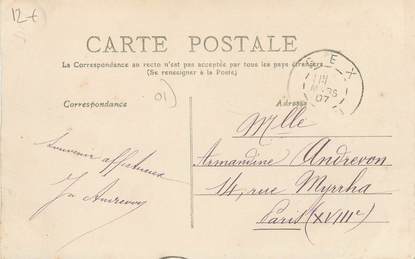 12 €
CARTE POSTALE
La Correspondance au recto n'est pas acceptée par tous les pays étrangers
(Se renseigner à la Poste)
Correspondance
01)
Adresse
EX
MARS
07
Mlle
Armandine Andrevon
14, rue Myrrha
Paris (XVIIIe)
Souvenir affectueux
Andrevon